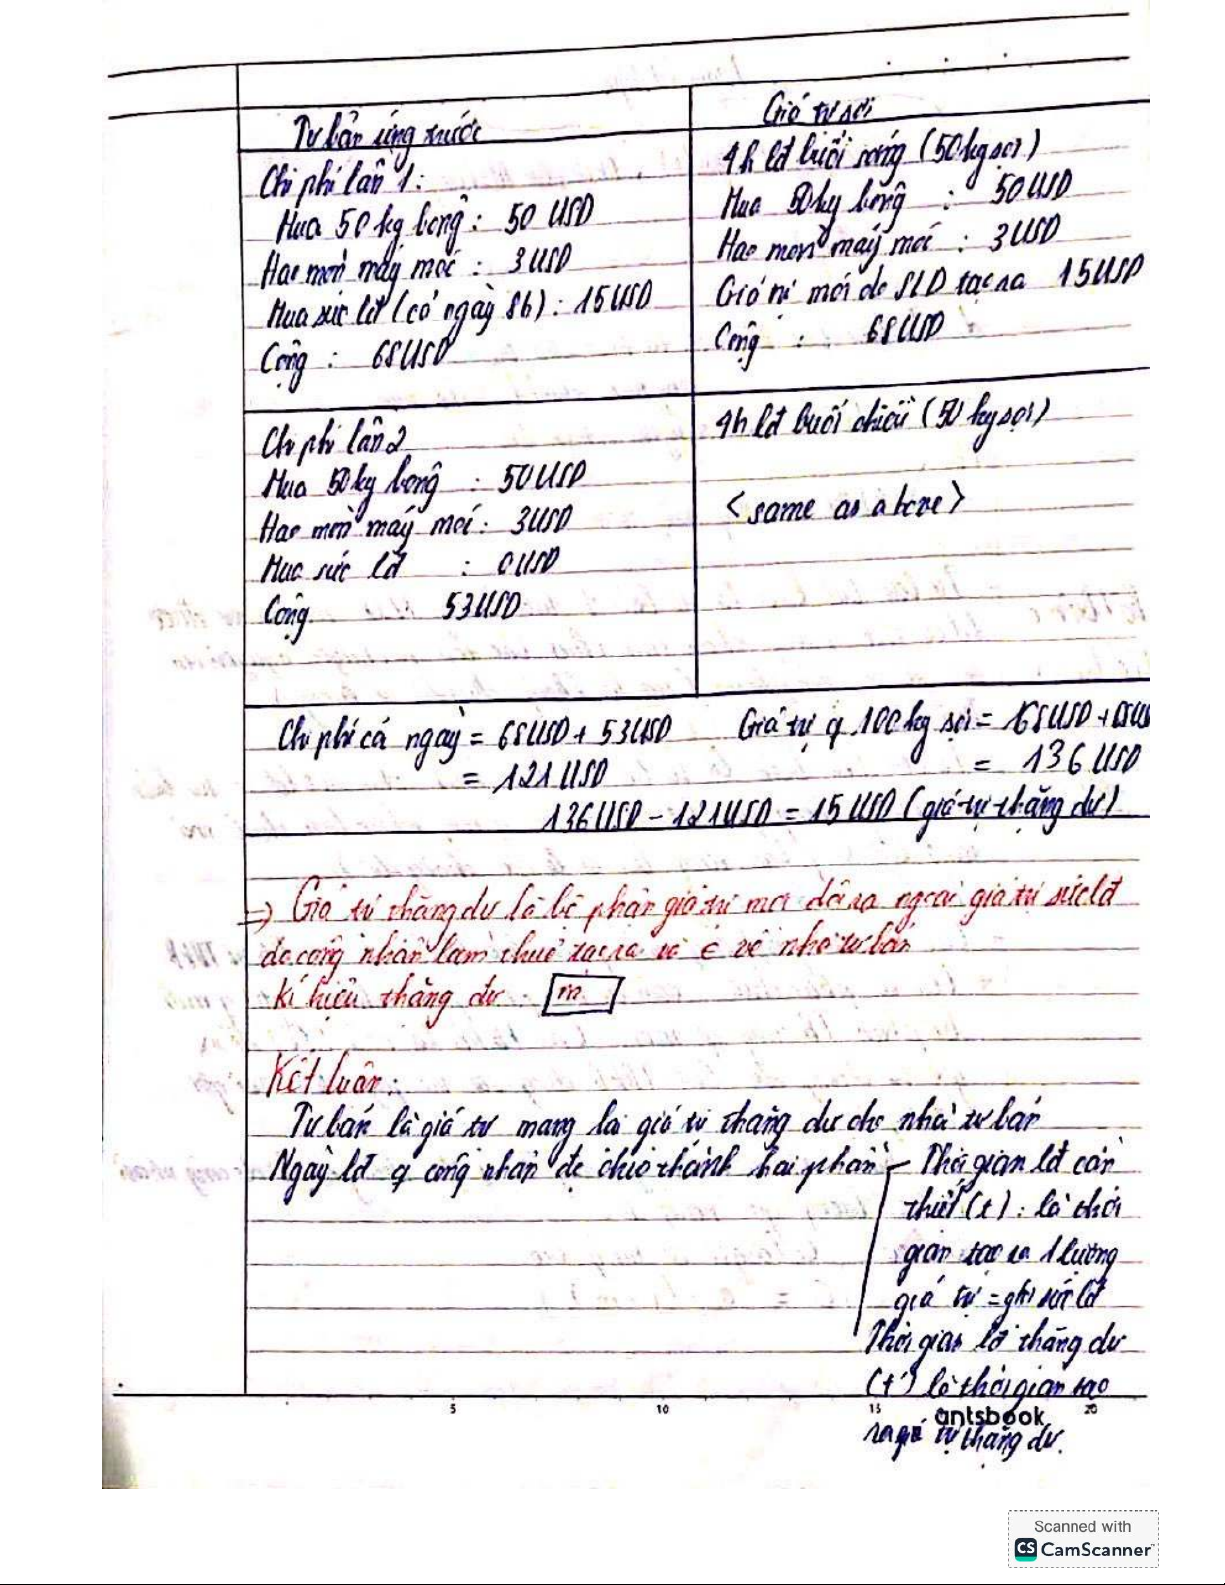 Tư bản ứng trước
Chi phí lần 1:
Mua 50 kg bông : 50 USD
Hao mòn máy móc : 3USD
Mua sức lđ (cả ngày 8h) : 15USD
Cộng : 68USD
Giá trị sợi
4h lđ buổi sáng (50kg sợi)
Mua 50kg bông : 50USD
Hao mòn máy móc : 3USD
Giá trị mới do SLD tạo ra 15USD
Cộng : 68USD
Chi phí lần 2
Mua 50kg bông : 50USD
Hao mòn máy móc : 3USD
Mua sức lđ : 0USD
Cộng 53USD
4h lđ buổi chiều (50 kg sợi)
<same as above>
Chi phí cả ngày = 68USD + 53USD
= 121USD
Giá trị q 100kg sợi = 68USD + 68US
= 136USD
136USD - 121USD = 15USD (giá trị thặng dư)
=) Giá trị thặng dư là bộ phận giá trị mới dôi ra ngoài giá trị sức lđ
do công nhân làm thuê tạo ra và ∈ về nhà tư bản
Kí hiệu thặng dư : m
Kết luận:
Tư bản là giá trị mang lại giá trị thặng dư cho nhà tư bản
Ngày lđ q công nhân đc chia thành hai phần - Thời gian lđ cần
thiết (t) : là thời
gian tạo ra 1 lượng
giá trị = gtri sức lđ
Thời gian lđ thặng dư
(t') là thời gian tạo
ra giá trị thặng dư.
5 10 15 20
antsbook
Scanned with
CS CamScanner